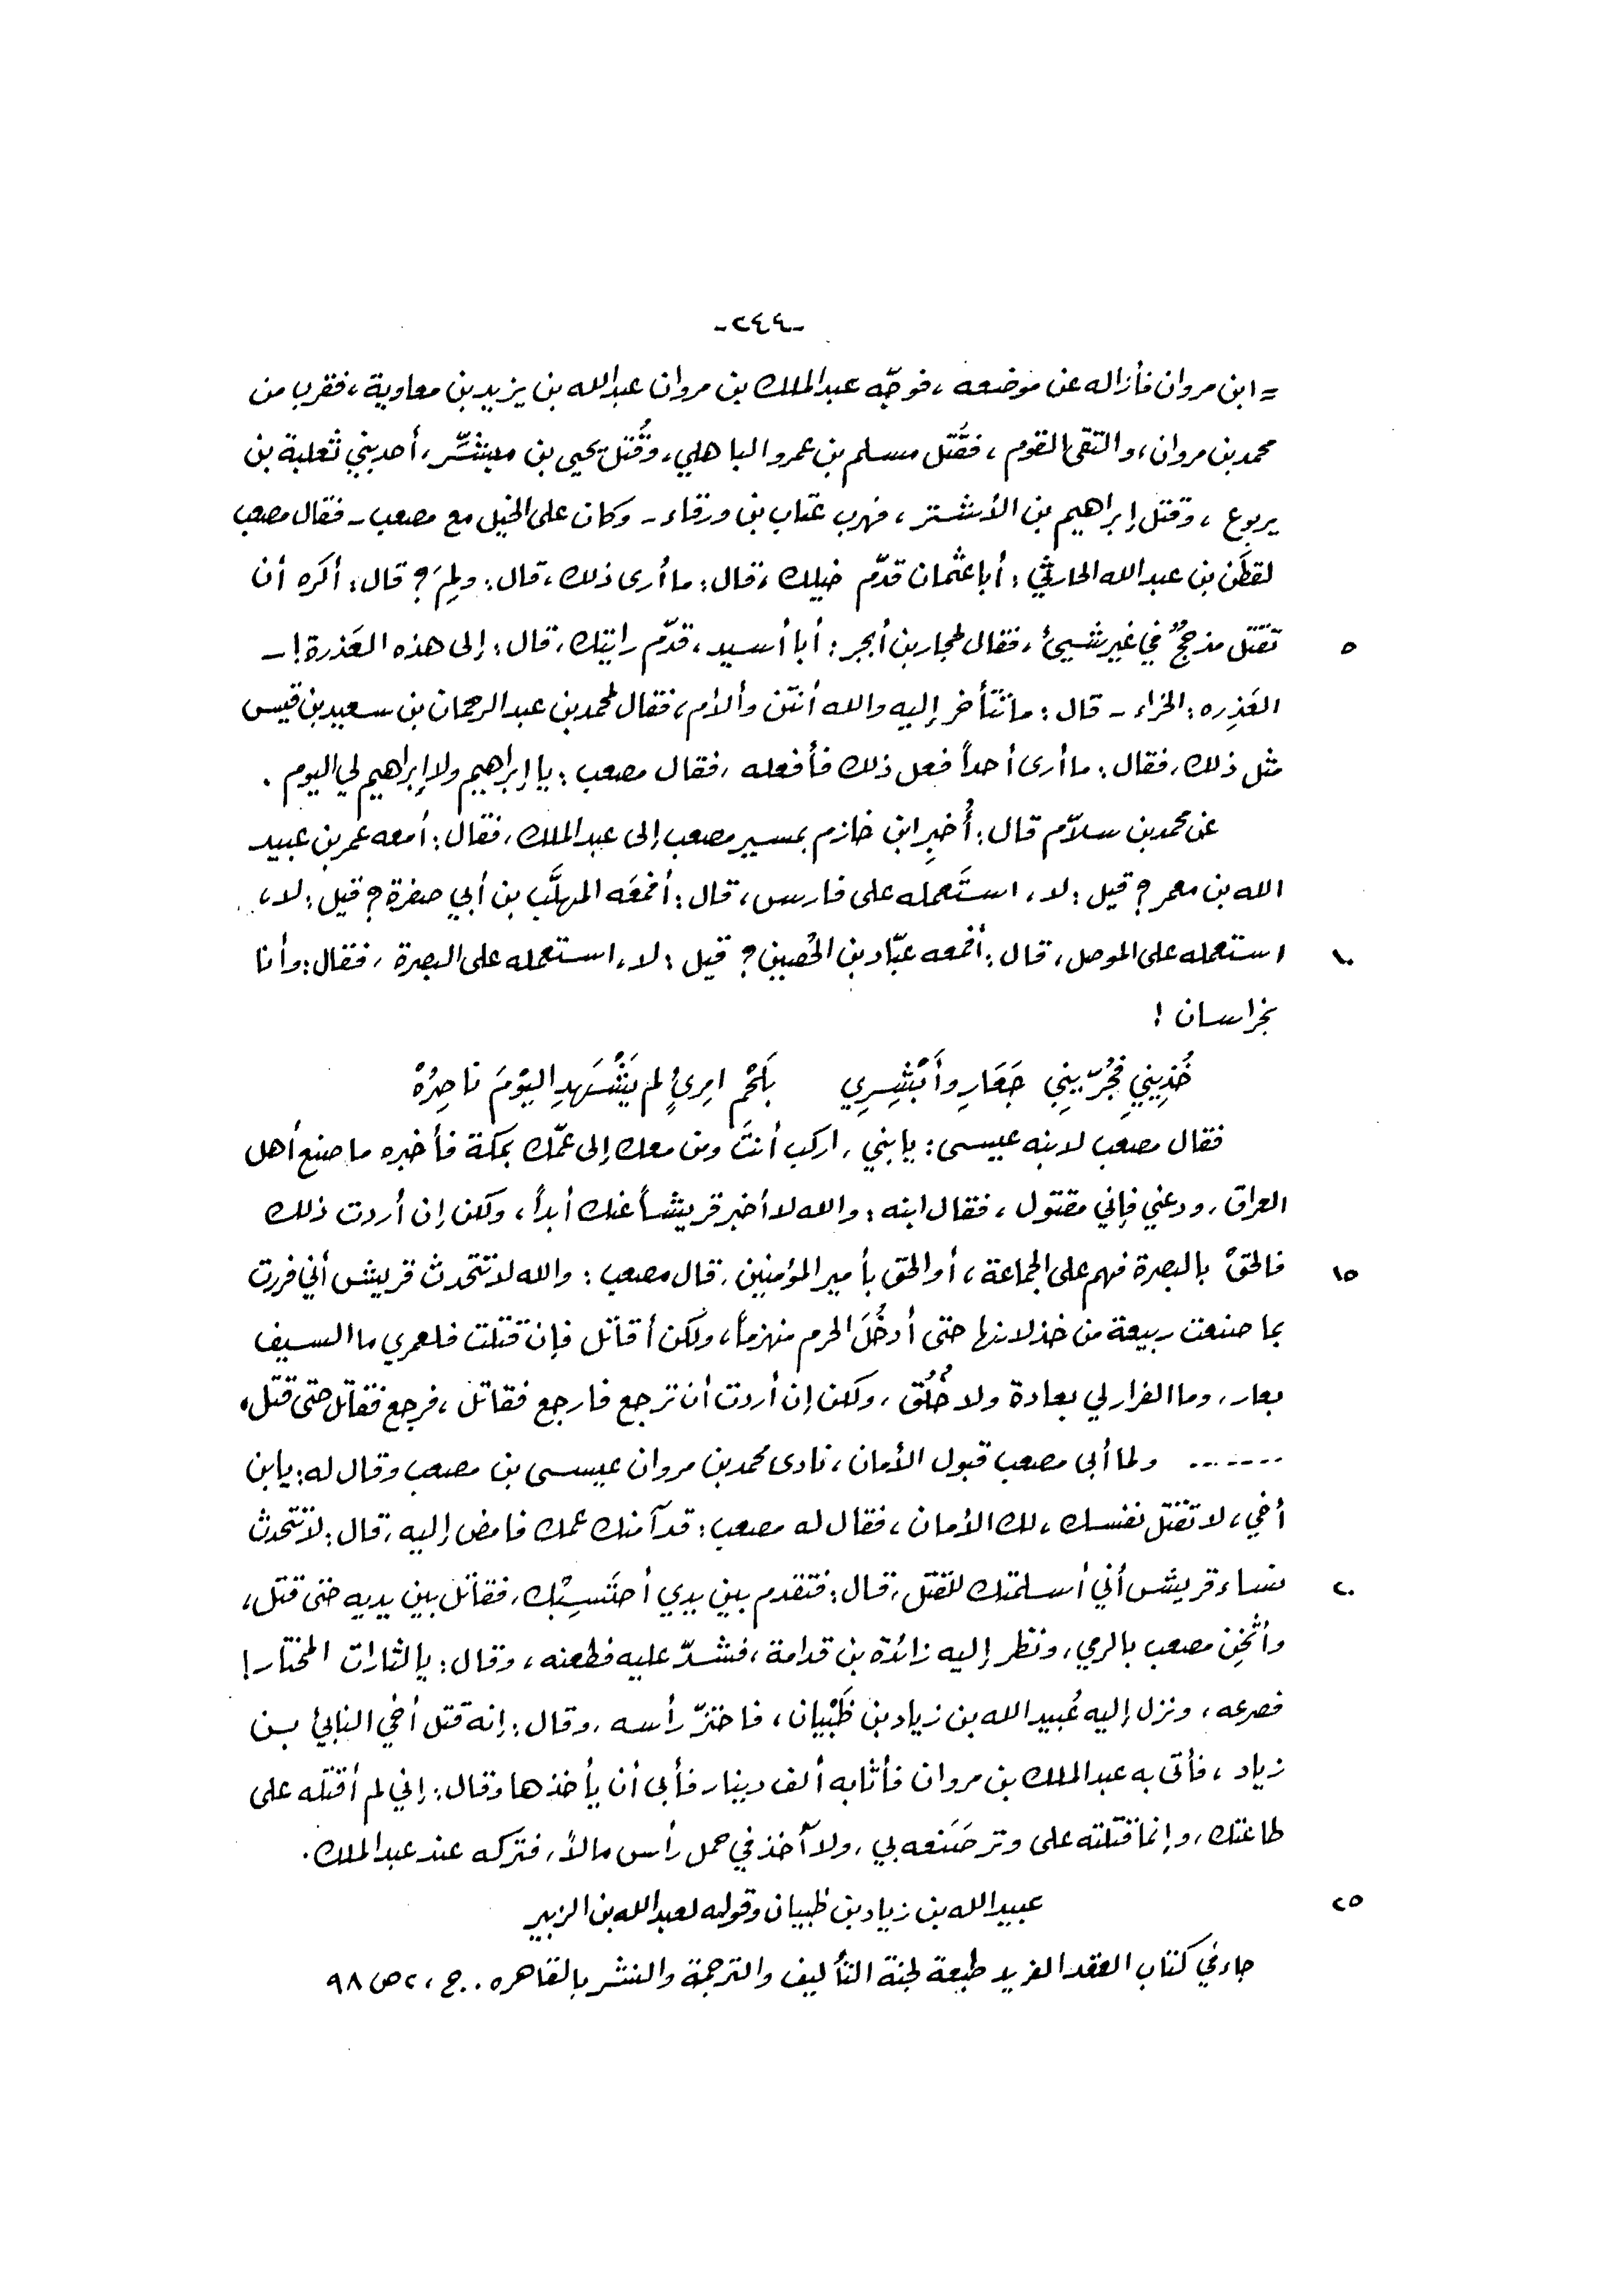 -٢٤٤-
= ابن مروان فأزاله عن موضعه ، فوجّه عبد الملك بن مروان عبد الله بن يزيد بن معاوية ، فقرب من
محمد بن مروان ، والتقى القوم ، فقُتل مسلم بن عمرو الباهلي ، وقُتل يحيى بن مبشّر ، أحد بني ثعلبة بن
يربوع ، وقتل إبراهيم بن الأشتر ، فهرب عتاب بن ورقاء - وكان على الخيل مع مصعب - فقال مصعب
لقطَن بن عبد الله الحارثي : أبا عثمان قدّم خيلك ، قال : ما أرى ذلك ، قال : ولِمَ ؟ قال : أكره أن
٥ تقتل مذحجٌ في غير شيئ ، فقال لحجار بن أبجر : أبا أسيد ، قدّم رايتك ، قال : إلى هذه العَذرة ! -
العَذِره : الخراء - قال : ما تتأخر إليه والله أنتن وألأم ، فقال لمحمد بن عبد الرحمان بن سعيد بن قيس
مثل ذلك ، فقال : ما أرى أحداً فعل ذلك فأفعله ، فقال مصعب : يا إبراهيم ولا إبراهيم لي اليوم .
عن محمد بن سلاّم قال : أُخبِر ابن خازم بمسير مصعب إلى عبد الملك ، فقال : أمعه عمر بن عبيد
الله بن معمر ؟ قيل : لا ، استَعمله على فارس ، قال : أفمعَه المهلَّب بن أبي صفرة ؟ قيل : لا ،
١٠ استعمله على الموصل ، قال : أفمعه عبّاد بن الحُصين ؟ قيل : لا ، استعمله على البصرة ، فقال : وأنا
بخراسان !
خُذِيني فجُرّيني جَعَارِ وأَبْشِرِي بلَحْمِ امرِئٍ لم يَشْهَدِ اليَوْمَ ناصِرُهْ
فقال مصعب لابنه عيسى : يا بني ، اركب أنتَ ومن معك إلى عمّك بمكة فأخبره ما صنع أهل
العراق ، ودعني فإني مقتول ، فقال ابنه : والله لا أخبر قريشاً عنك أبداً ، ولكن إن أردت ذلك
١٥ فالحقْ بالبصرة فهم على الجماعة ، أو الحق بأمير المؤمنين ، قال مصعب : والله لا تتحدث قريش أني فررت
بما صنعت ربيعة من خذلانها حتى أدخُلَ الحرم منهزماً ، ولكن أقاتل فإن قتلت فلعمري ما السيف
بعار ، وما الفرار لي بعادة ولا خُلُق ، ولكن إن أردت أن ترجع فارجع فقاتل ، فرجع فقاتل حتى قتل ،
....... ولما أبى مصعب قبول الأمان ، نادى محمد بن مروان عيسى بن مصعب وقال له : يا بن
أخي ، لا تقتل نفسك ، لك الأمان ، فقال له مصعب : قد آمنك عمك فامض إليه ، قال : لا تتحدث
٢٠ نساء قريش أني أسلمتك للقتل ، قال : فتقدم بين يدي أحتَسِبْك ، فقاتل بين يديه حتى قتل ،
وأُثخِن مصعب بالرمي ، ونظر إليه زائدة بن قدامة ، فشدّ عليه فطعنه ، وقال : يا لثارات المختار !
فصرعه ، ونزل إليه عُبيد الله بن زياد بن ظَبْيان ، فاحتزّ رأسه ، وقال : إنه قتل أخي النابئ بن
زياد ، فأتى به عبد الملك بن مروان فأثابه ألف دينار فأبى أن يأخذها وقال : إني لم أقتله على
طاعتك ، وإنما قتلته على وتر صَنعه بي ، ولا آخذ في حمل رأس مالاً ، فتركه عند عبد الملك .
٢٥ عبيد الله بن زياد بن ظبيان وقوله لعبد الله بن الزبير
جاء في كتاب العقد الفريد طبعة لجنة التأليف والترجمة والنشر بالقاهره . ج ، ٢ ص ٩٨